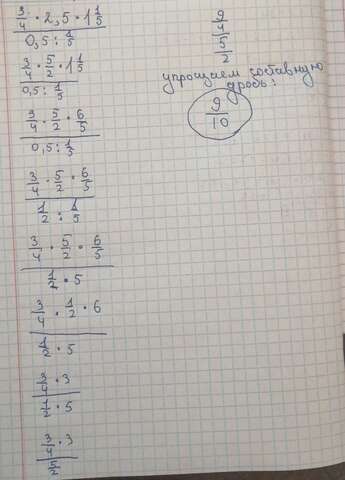 3/4 · 2,5 · 1 1/5
0,5 : 1/5
3/4 · 5/2 · 1 1/5
0,5 : 1/5
3/4 · 5/2 · 6/5
0,5 : 1/5
3/4 · 5/2 · 6/5
1/2 : 1/5
3/4 · 5/2 · 6/5
1/2 · 5
3/4 · 1/2 · 6
1/2 · 5
3/4 · 3
1/2 · 5
3/4 · 3
5/2
9/4
5/2
упрощаем составную
дробь:
9/10